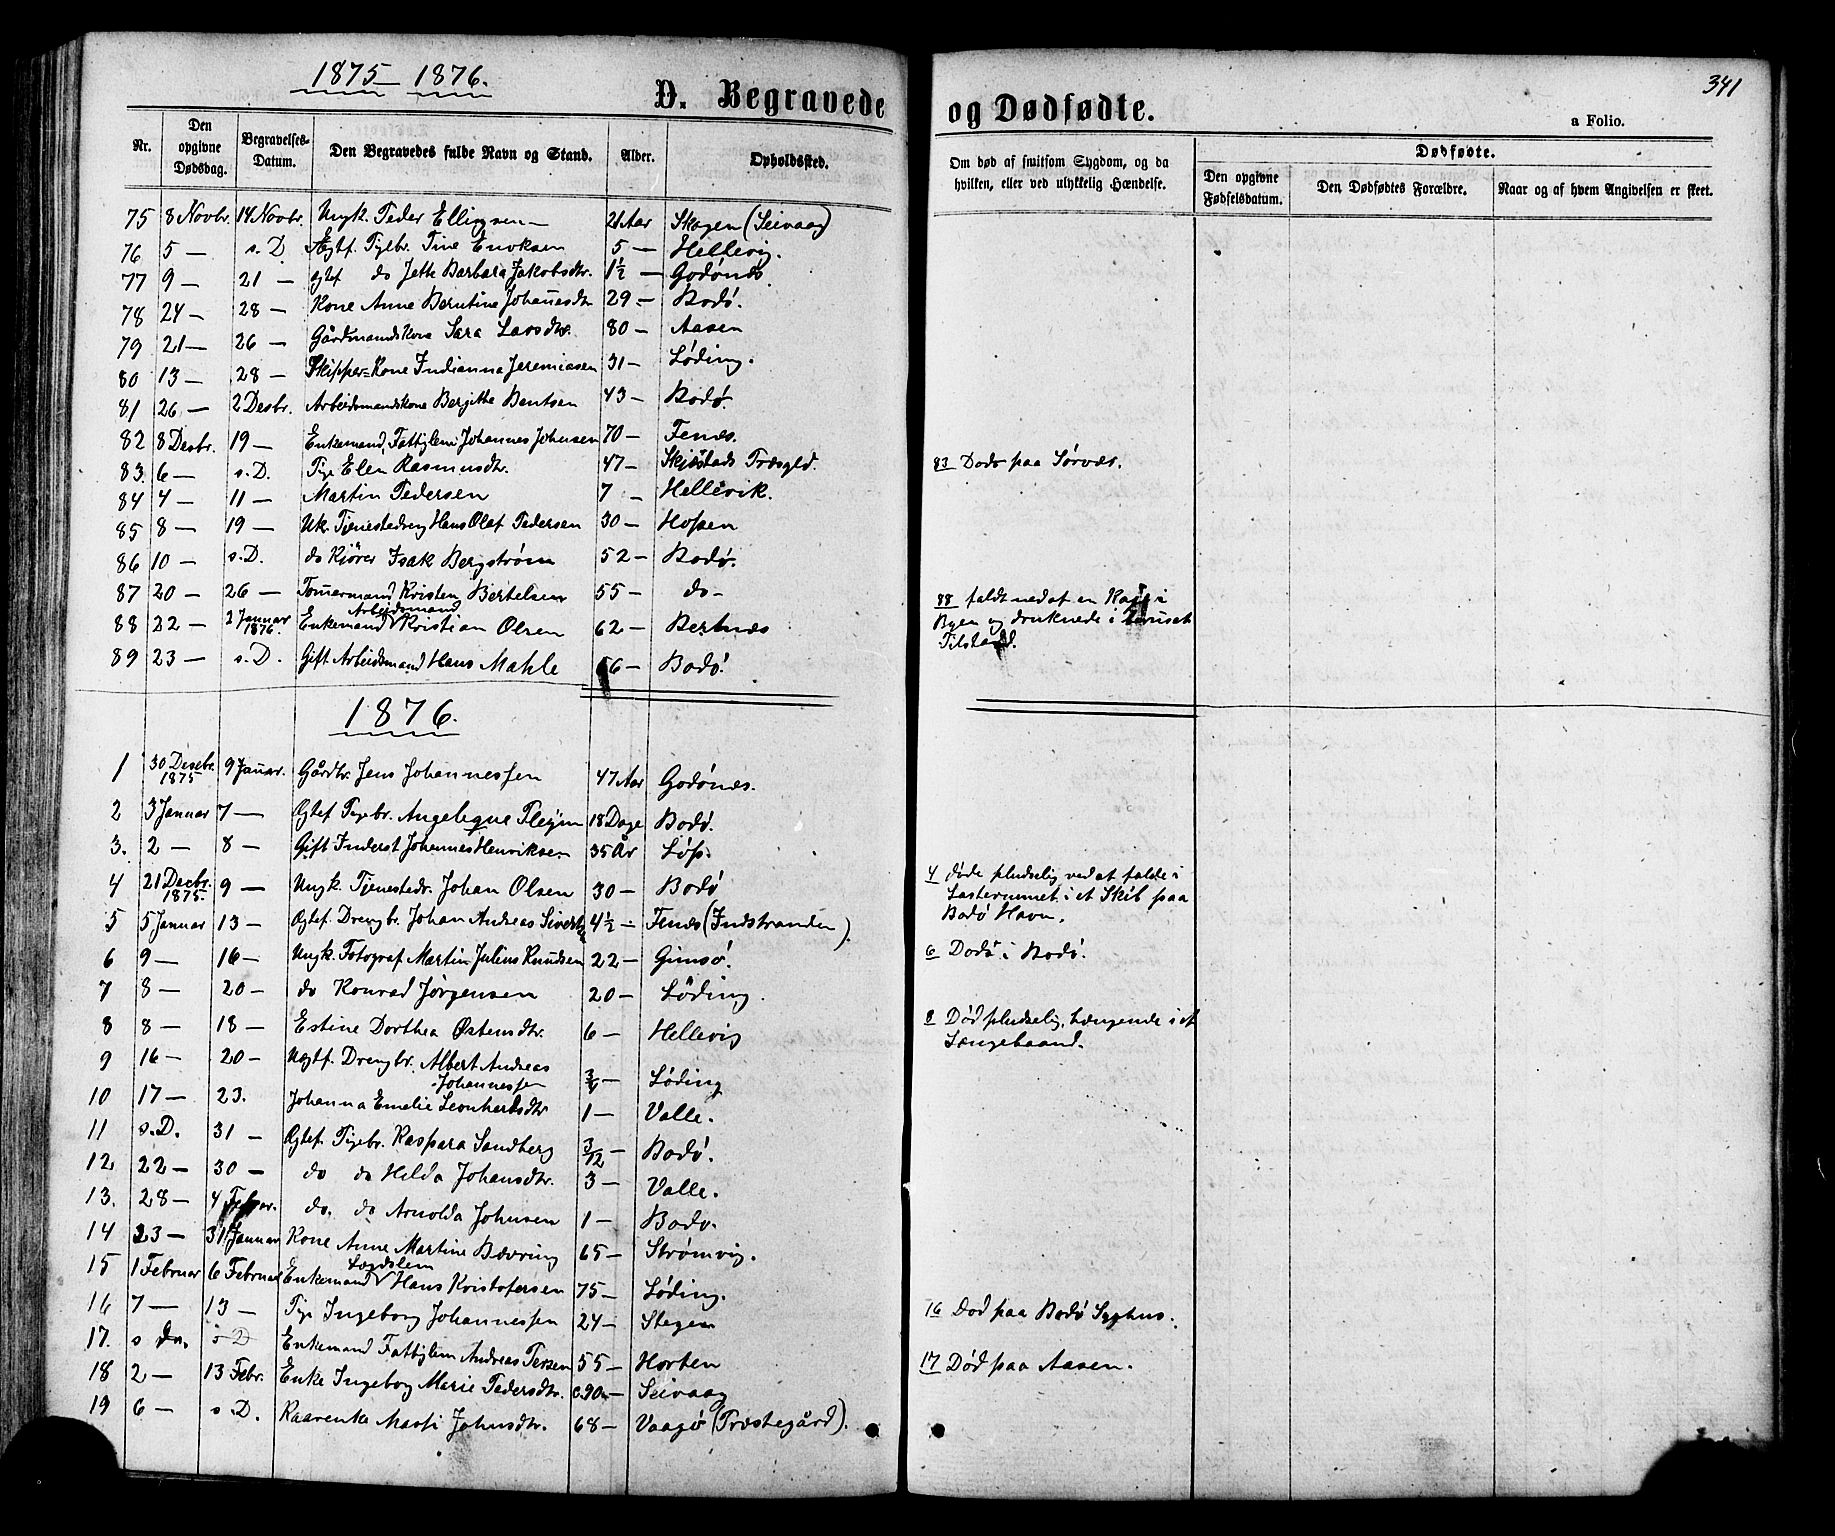 1875 1876.
D. Begravede og Dødfødte.
341
a Folio.
Nr. | Den opgivne Dødsdag. | Begravelses-Datum. | Den Begravedes fulde Navn og Stand. | Alder. | Opholdssted. | Om død af smitsom Sygdom, og da hvilken, eller ved ulykkelig Hændelse. | Dødfødte. Den opgivne Fødselsdatum. | Den Dødfødtes Forældre. | Naar og af hvem Angivelsen er skeet.
75 8 Novbr. 14 Novbr. Ungk. Peder Ellingsen 21 Aar Skagen (Seivaag)
76 5 — s. D. Ægtf. Pigebr. Tine Eriksen 5 — Hellevig.
77 9 — 21 — Ægtf do Jette Barbara Jakobsdtr. 1½ — Godønes
78 24 — 28 — Kone Anne Berntine Johannesdtr 29 — Bodø.
79 21 — 26 — Gårdmandskone Sara Larsdtr. 80 — Aasen
80 13 — 28 — Skipper-Kone Indianna Jeremiasen 31 — Løding.
81 26 — 2 Desbr. Arbeidsmandskone Bergitte Bentsen 43 — Bodø.
82 8 Desbr. 19 — Enkemand, Fattiglem Johannes Johnsen 70 — Fenes.
83. 6 — s. D. Pige Elen Rasmusdtr. 47 — Skjerstads Præsgld. 83 Døde paa Sørvær.
84 4 — 11 — Martin Pedersen 7 — Hellevik.
85 8 — 19 — Uk. Tjenestedreng Hans Olaf Pedersen 30 — Hopen
86 10 — s. D. do Kjører Isak Bergstrøm 52 — Bodø.
87 20 — 26 — Tømermand Kristen Bertelsen 55 — do —
88 22 — 2 Januar 1876. Enkemand Arbeidsmand Kristian Olsen 62 — Bertnes 88 faldt ned af en Kai i
Byen og druknede i beruset
Tilstand.
89 23 — s. D. Gift Arbeidsmand Hans Mahle 66 — Bodø.
1876.
1 30 Desbr. 1875 9 Januar. Gårdbr. Jens Johannessen 47 Aar Godønes.
2 3 Januar 7 — Ægtef Pigebr. Angeleque Pleym 18 Dage Bodø.
3. 2 — 8 — Gift Inderst Johannes Henriksen 35 År Løp.
4 21 Decbr. 1875. 9 — Ungk. Tjenestedr. Johan Olsen 30 — Bodø 4 døde pludselig ved at falde i
Lasterummet i et Skib paa
Bodø Havn.
5 5 Januar 13 — Ægtef. Drengbr. Johan Andreas Sivertsen 4½ — Fenes (Indstranden).
6 9 — 16 — Ungk. Fotograf Martin Julius Knudsen 22 — Gimsø. 6 Døde i Bodø.
7 8 — 20 — do Konrad Jørgensen 20 — Løding.
8 8 — 18 — Estine Dorthea Østensdtr. 6 — Hellevig 8 Død pludselig, hængende i et
Længebaand.
9 16 — 20 — Uægtf. Drengbr. Albert Andreas Johannessen 3/4 — Løding
10 17 — 23. Johanna Emelie Leonhardsdtr 1 — Valle.
11 s. D. 31 — Ægtef. Pigebr. Kaspara Sandberg 3/12 — Bodø.
12 22 — 30 — do do Hilda Johansdtr. 3 — Valle.
13. 28 — 4 Febr. do. do Arnolda Johnsen 1 — Bodø.
14 23 — 31 Januar Kone Anne Martine Bævring 65 — Strømvig.
15 1 Februar 6 Februar Enkemand Lægdslem Hans Kristofersen 75 — Løding.
16 7 — 13 — Pige Ingeborg Johannessen 24 — Stegen 16 Død paa Bodø Syghus.
17. s Da. s D Enkemand Fattiglem Andreas Persen 55 — Horten 17 Død paa Aasen.
18 2 — 13 Febr. Enke Ingeborg Marie Pedersdtr. c. 90 — Seivaag
19 6 — s. D. Kaarenke Marsi Johnsdtr. 68 — Vaagø (Præstegård).